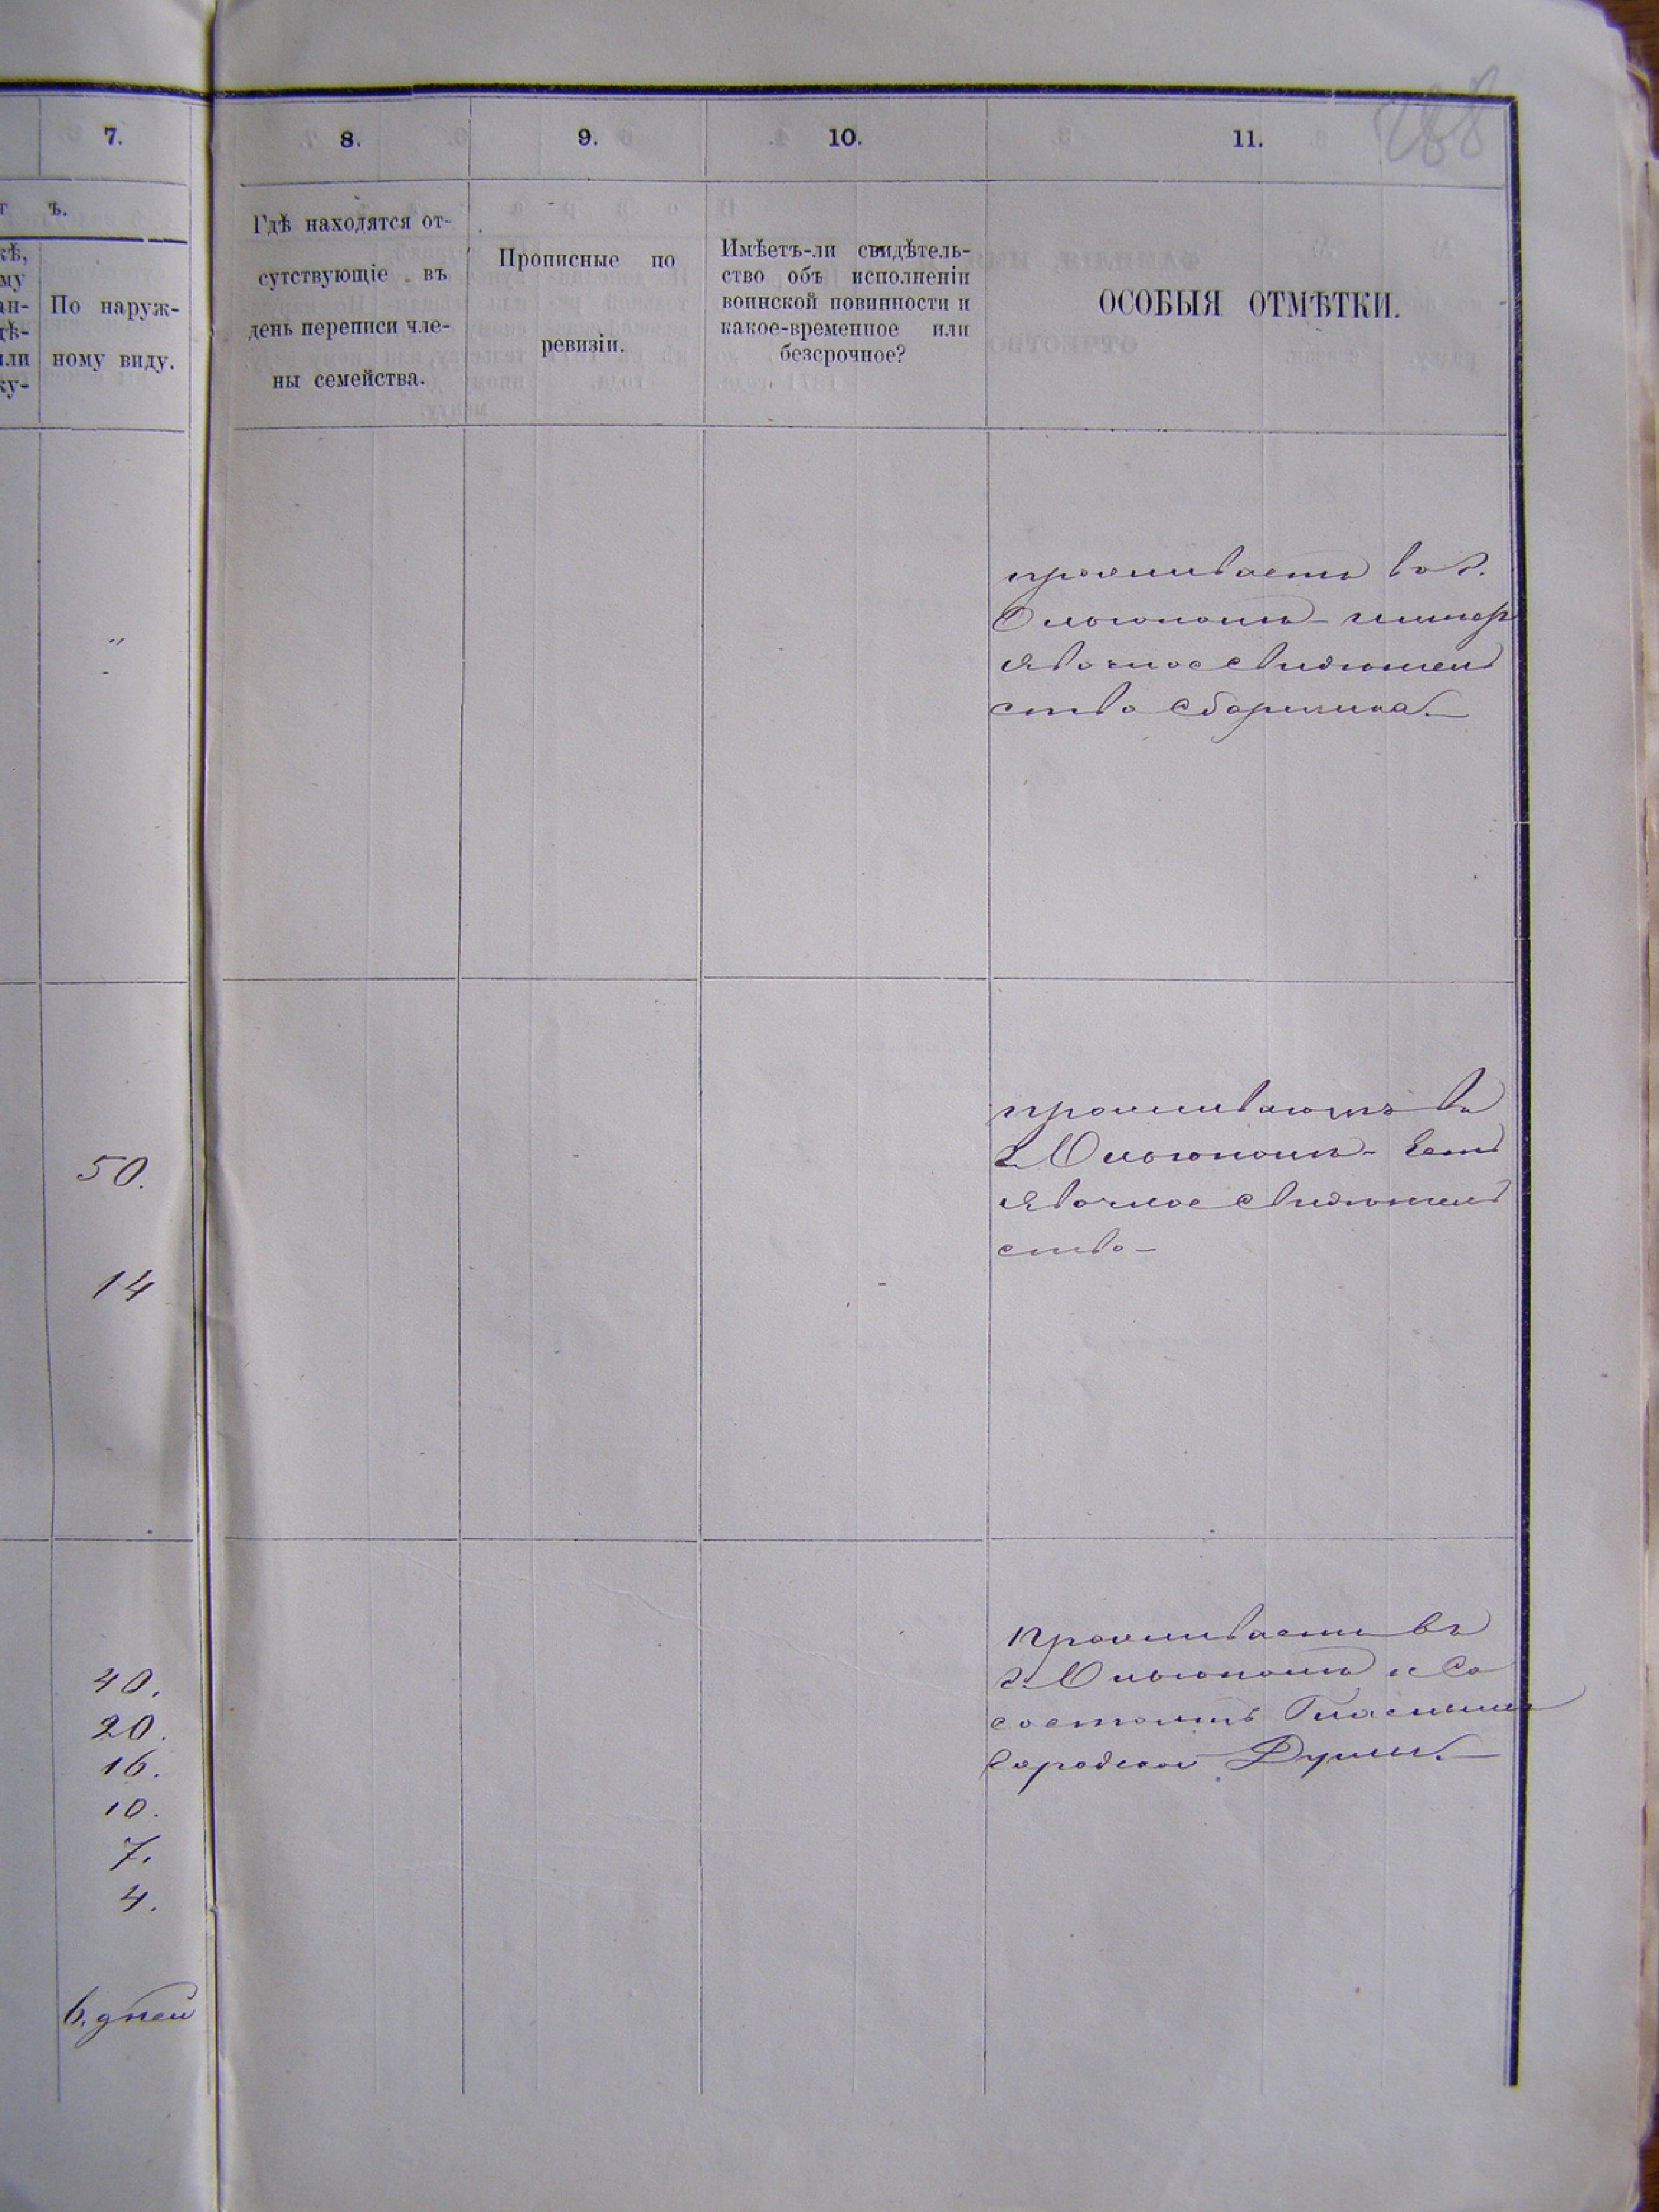 288
7.
8.
9.
10.
11.
ъ.
По наруж-
ному виду.
Гдѣ находятся от-
сутствующіе въ
день переписи чле-
ны семейства.
Прописные по
ревизіи.
Имѣетъ-ли свидѣтель-
ство объ исполненіи
воинской повинности и
какое-временное или
безсрочное?
ОСОБЫЯ ОТМѢТКИ.
"
проживаетъ въ г.
явочное свидѣтель
ство
50.
14
проживаютъ въ
г. есть
явочное свидѣтель
ство-
40.
20.
16.
10.
7.
4.
6. дней
проживаетъ въ
г. и со
состоитъ Гласнымъ
Городской Думы.-